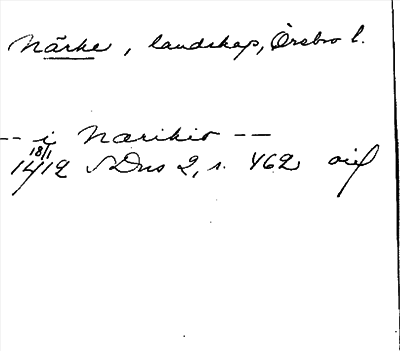 Närke, landskap, Örebro l.
-- i Nærikio --
18/1
1412 SDns 2, s. 462 avs